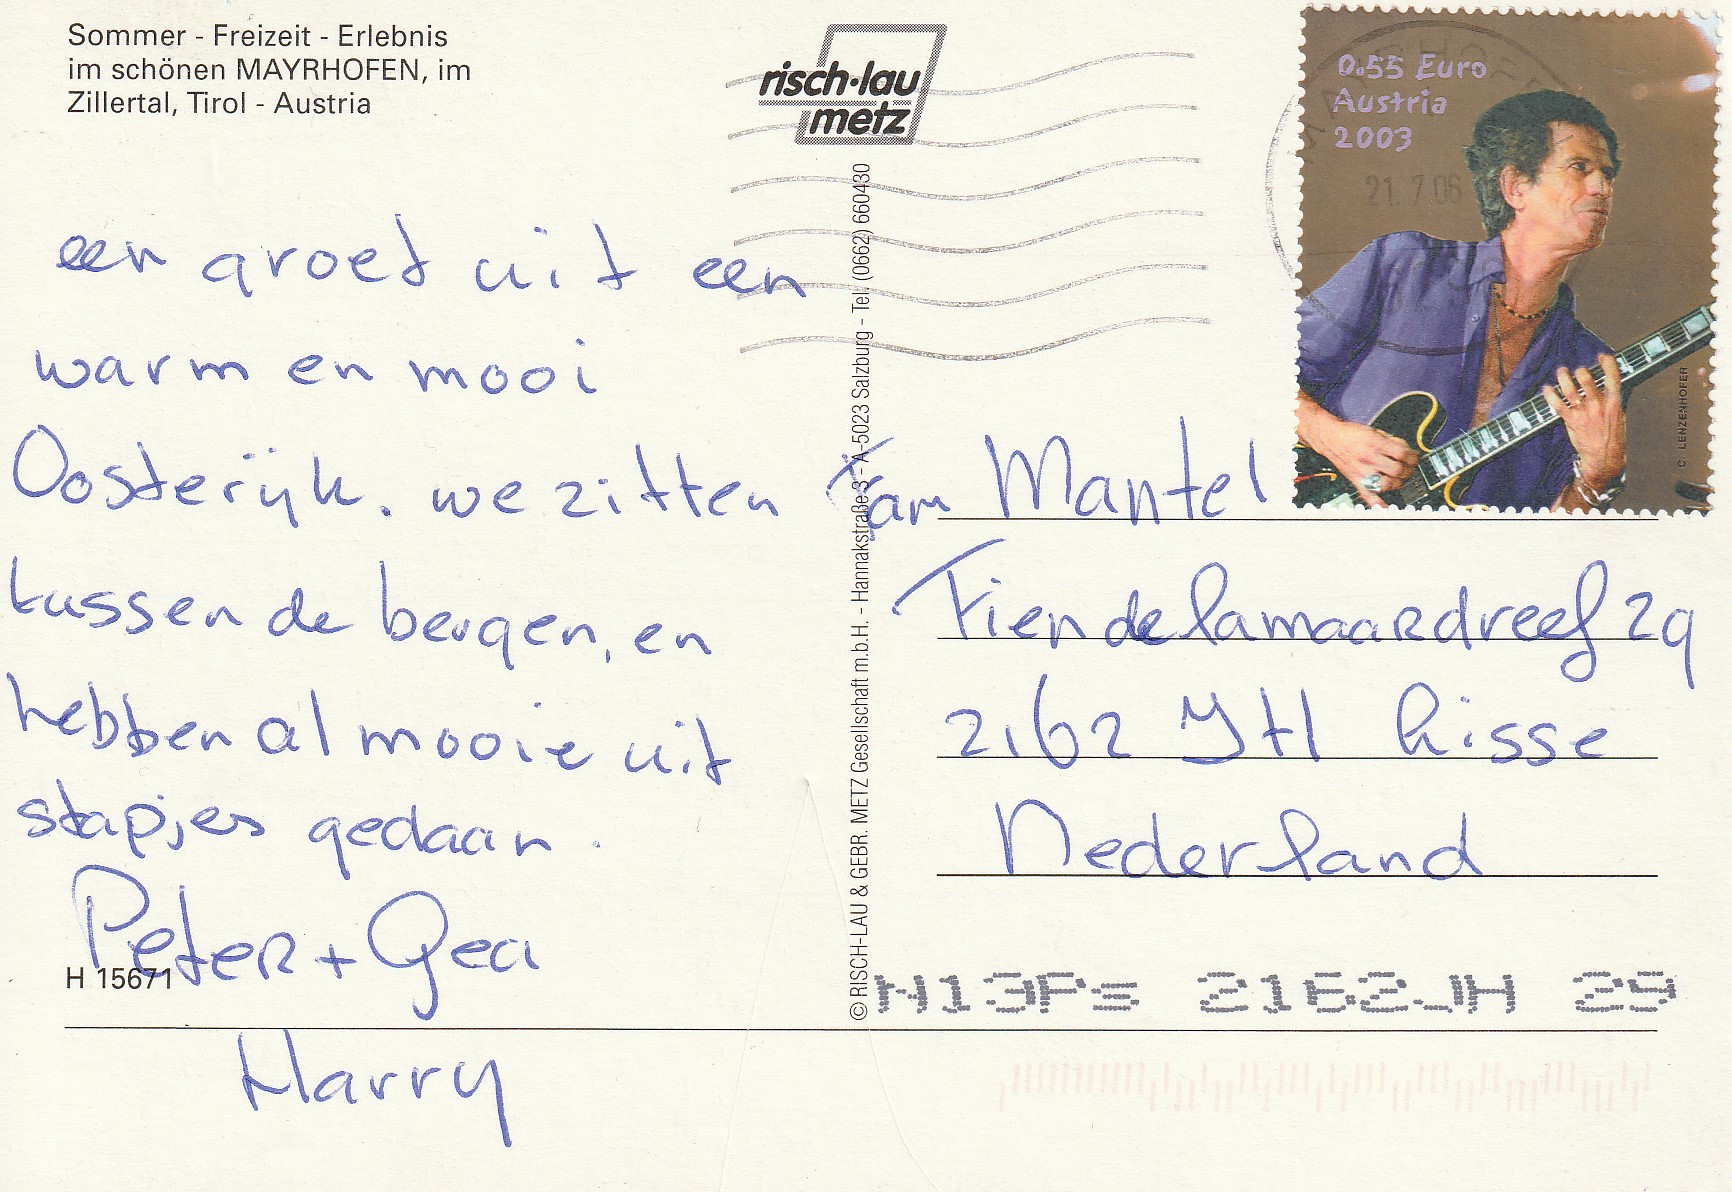 Sommer - Freizeit - Erlebnis
im schönen MAYRHOFEN, im
Zillertal, Tirol - Austria
risch·lau
metz
0.55 Euro
Austria
2003
21.7.06
C. LENZENHOFER
een groet uit een
warm en mooi
Oosterijk. we zitten
tussen de bergen, en
hebben al mooie uit
stapjes gedaan.
Peter + Gea
Harry
H 15671
© RISCH-LAU & GEBR. METZ Gesellschaft m.b.H. - Hannakstraße 3 - A-5023 Salzburg - Tel. (0662) 660430
Fam Mantel
Fien de lamaardreef 29
2162 JH lisse
Nederland
N13Ps 2162JH 29